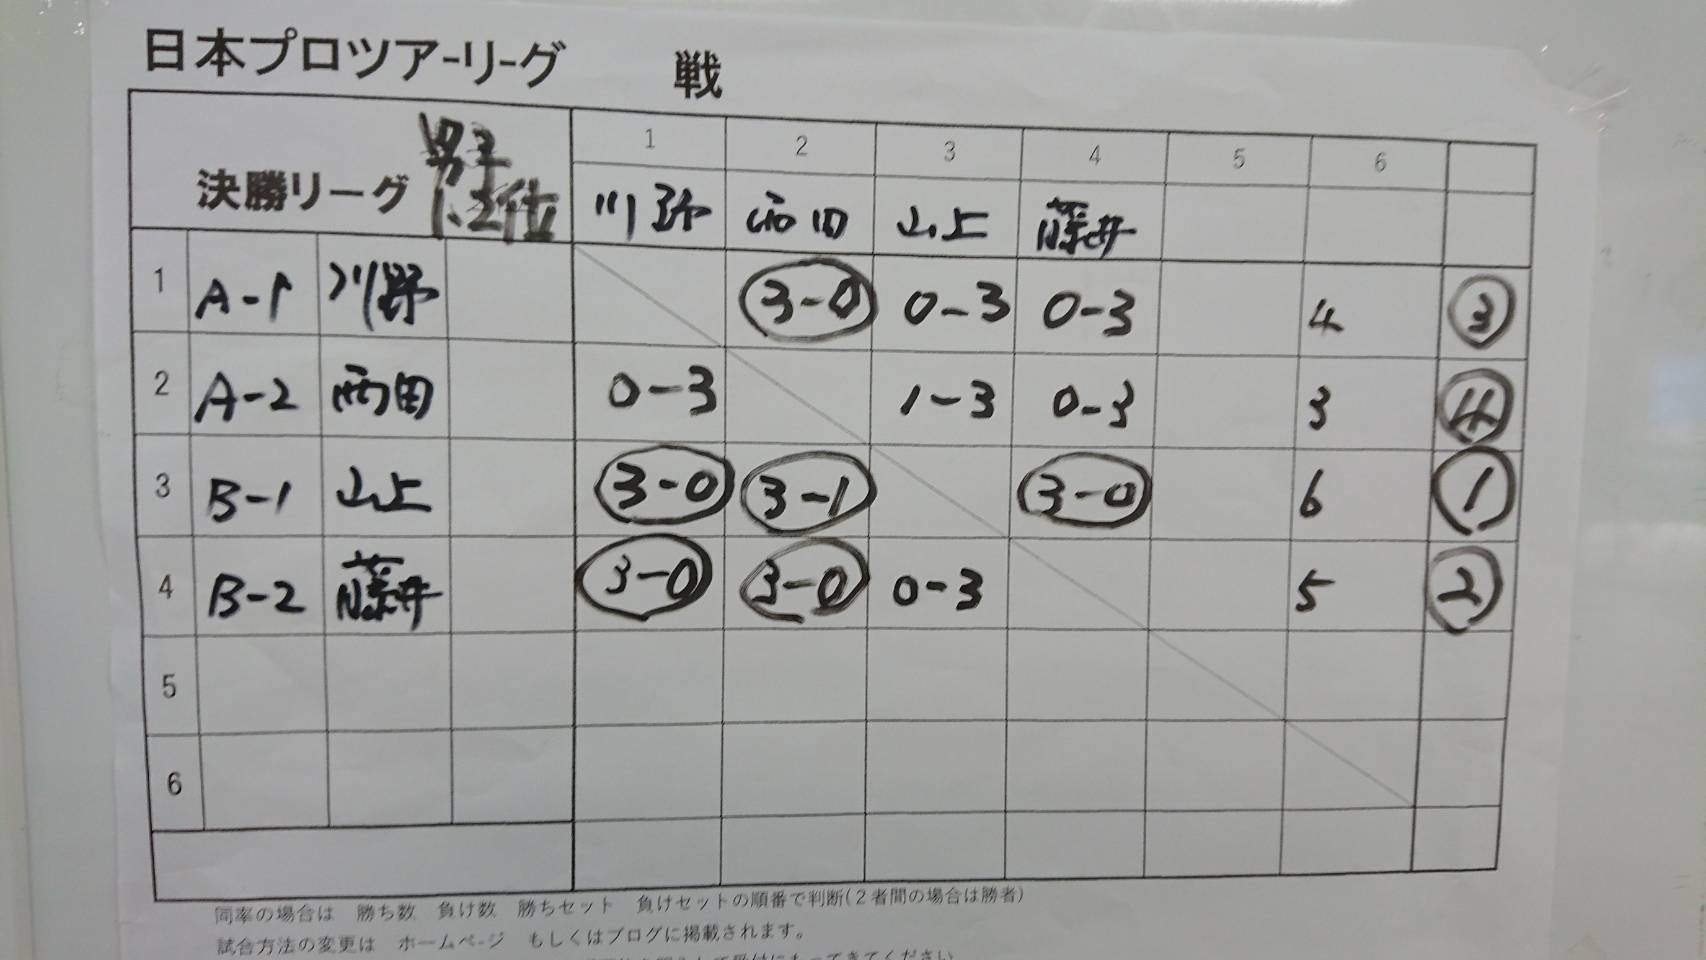 日本プロツアーリーグ 戦
決勝リーグ 男子 1、2位
1 2 3 4 5 6
川野 西田 山上 藤井
1 A-1 川野 3-0 0-3 0-3 4 ③
2 A-2 西田 0-3 1-3 0-3 3 ④
3 B-1 山上 3-0 3-1 3-0 6 ①
4 B-2 藤井 3-0 3-0 0-3 5 ②
5
6
同率の場合は 勝ち数 負け数 勝ちセット 負けセットの順番で判断(2者間の場合は勝者)
試合方法の変更は ホームページ もしくはブログに掲載されます。